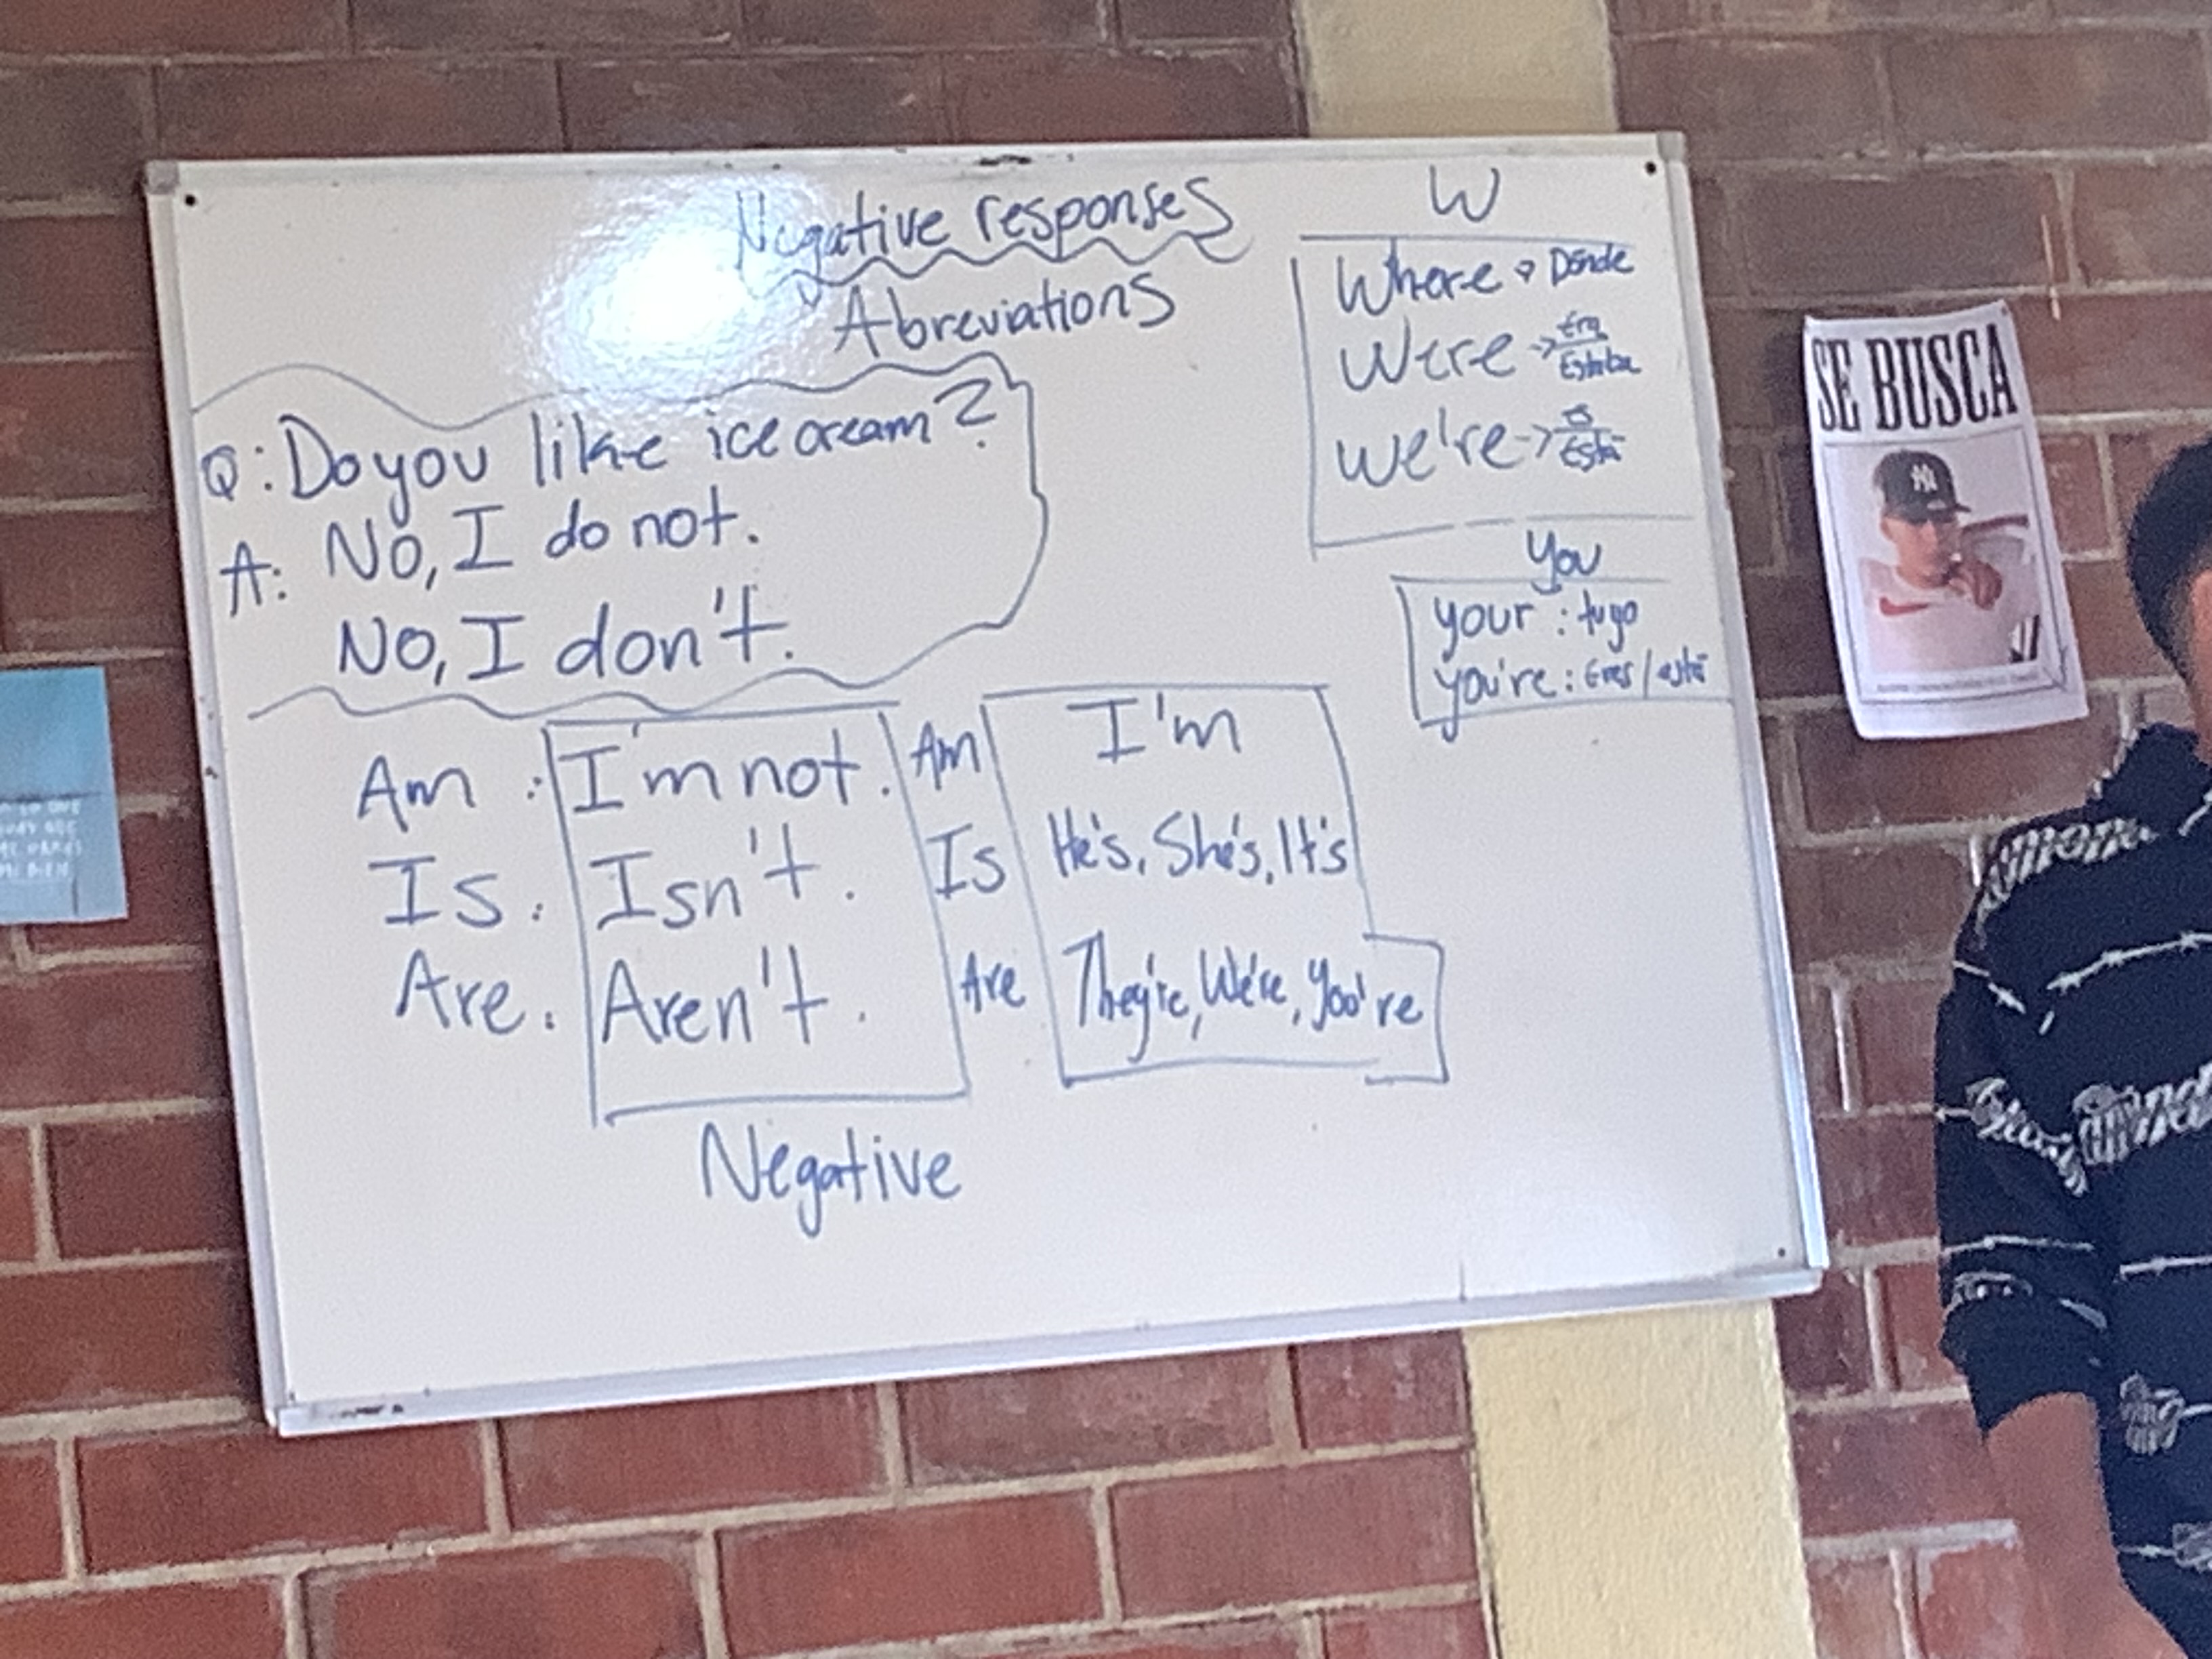 Negative responses
Abreviations
Q: Do you like ice cream?
A: No, I do not.
No, I don't.
W
Where → Dónde
Were → Era
Estaba
we're → Es
Está
You
your : tuyo
you're : Eres / está
Am : I'm not. Am I'm
Is : Isn't. Is He's, She's, It's
Are : Aren't. Are They're, We're, You're
Negative
SE BUSCA
NY